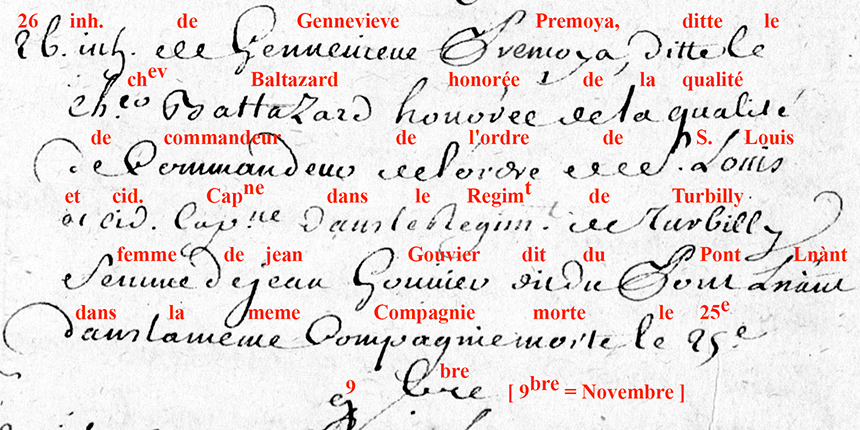 26 inh. de Gennevieve Premoya, ditte le
26. inh. de Gennevieve Premoya, ditte le
chev Baltazard honorée de la qualité
chev Baltazard honorée de la qualité
de commandeur de l'ordre de S. Louis
de Commandeur de l'ordre de S. Louis
et cid. Capne dans le Regimt de Turbilly
et cid. Capne dans le Regimt. de Turbilly
femme de jean Gouvier dit du Pont Lnànt
femme de jean Gouvier dit du Pont Lnànt
dans la meme Compagnie morte le 25e
dans la meme Compagnie morte le 25e
9bre [ 9bre = Novembre ]
9bre